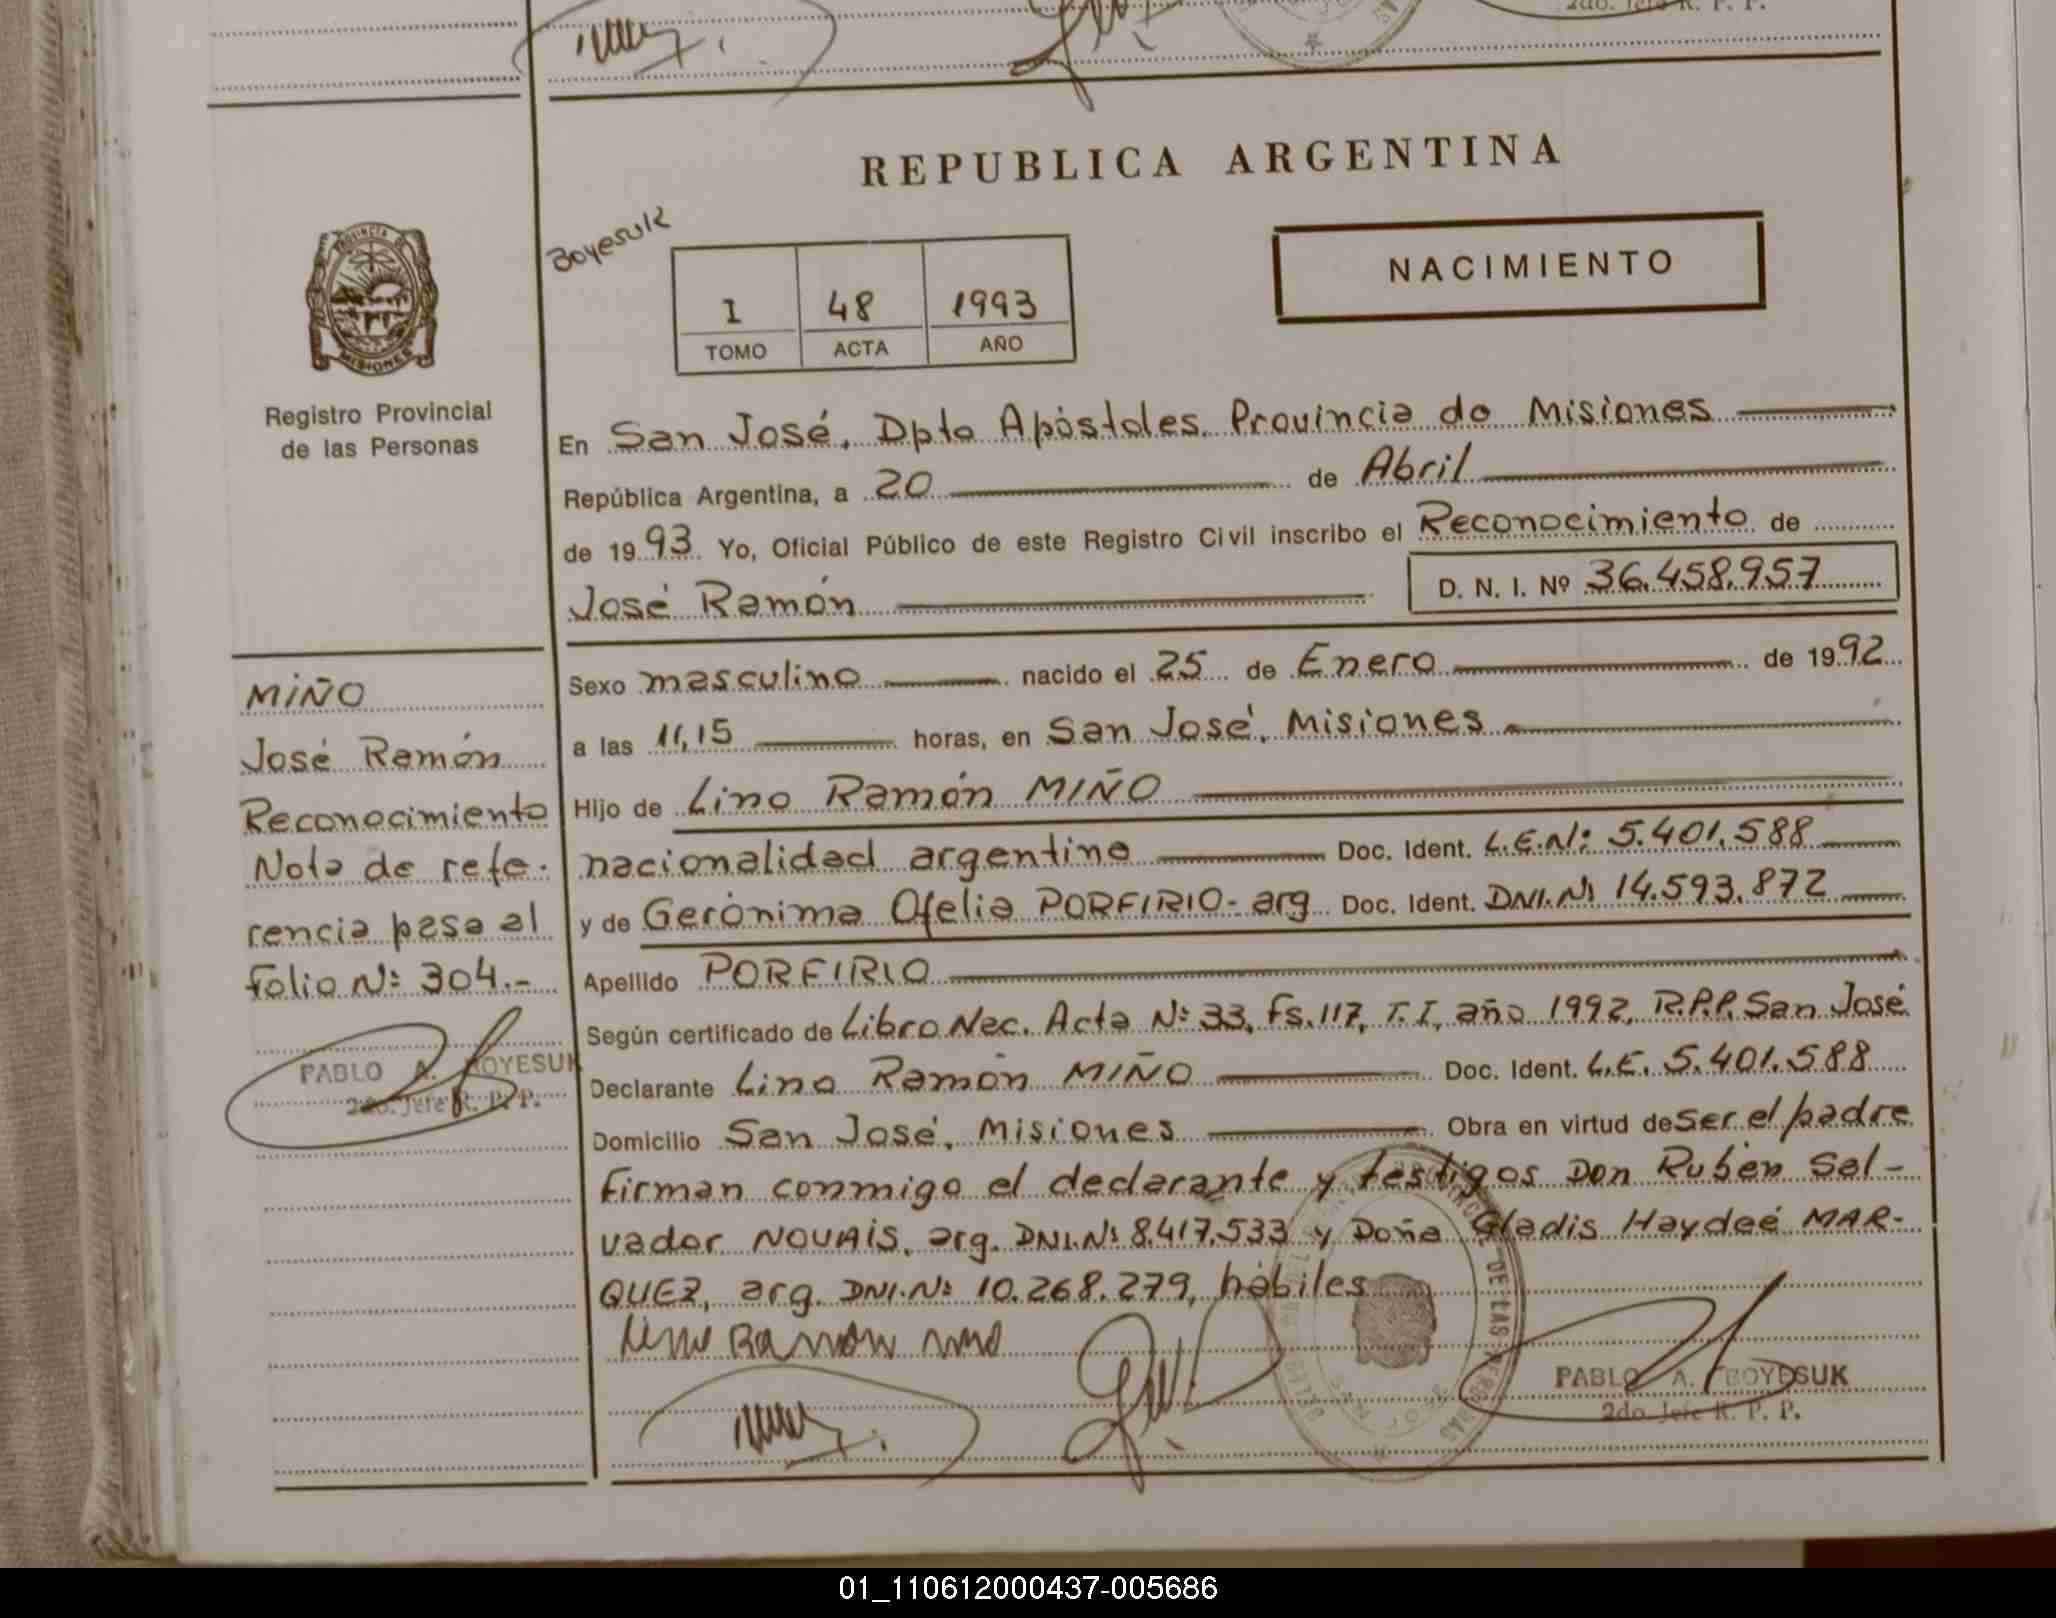 2do. Jefe R. P. P.
REPUBLICA ARGENTINA
Boyesuk
NACIMIENTO
1 48 1993
TOMO ACTA AÑO
PROVINCIA DE
MISIONES
Registro Provincial
de las Personas
En San José, Dpto Apóstoles. Provincia de Misiones
República Argentina, a 20 de Abril
de 1993 Yo, Oficial Público de este Registro Civil inscribo el Reconocimiento de
José Ramón D. N. I. Nº 36.458.957
MIÑO
José Ramón
Reconocimiento
Nota de refe-
rencia pasa al
Folio Nº 304.-
PABLO A. BOYESUK
2do. Jefe R. P. P.
Sexo masculino nacido el 25 de Enero de 1992
a las 11,15 horas, en San José, Misiones
Hijo de Lino Ramón MIÑO
nacionalidad argentino Doc. Ident. L.E.Nº 5.401.588
y de Gerónima Ofelia PORFIRIO- arg Doc. Ident. DNI.Nº 14.593.872
Apellido PORFIRIO
Según certificado de Libro Nac. Acta Nº 33, Fs. 117, T. I, año 1992, R.P.P. San José
Declarante Lino Ramón MIÑO Doc. Ident. L.E. 5.401.588
Domicilio San José, Misiones Obra en virtud de Ser el padre
Firman conmigo el declarante y testigos Don Rubén Sal-
vador NOVAIS, arg. DNI.Nº 8.417.533 y Doña Gladis Haydeé MAR-
QUEZ, arg. DNI.Nº 10.268.279, hábiles
Lino Ramon Miño
DE LAS PERSONAS
PABLO A. BOYESUK
2do. Jefe R. P. P.
01_110612000437-005686